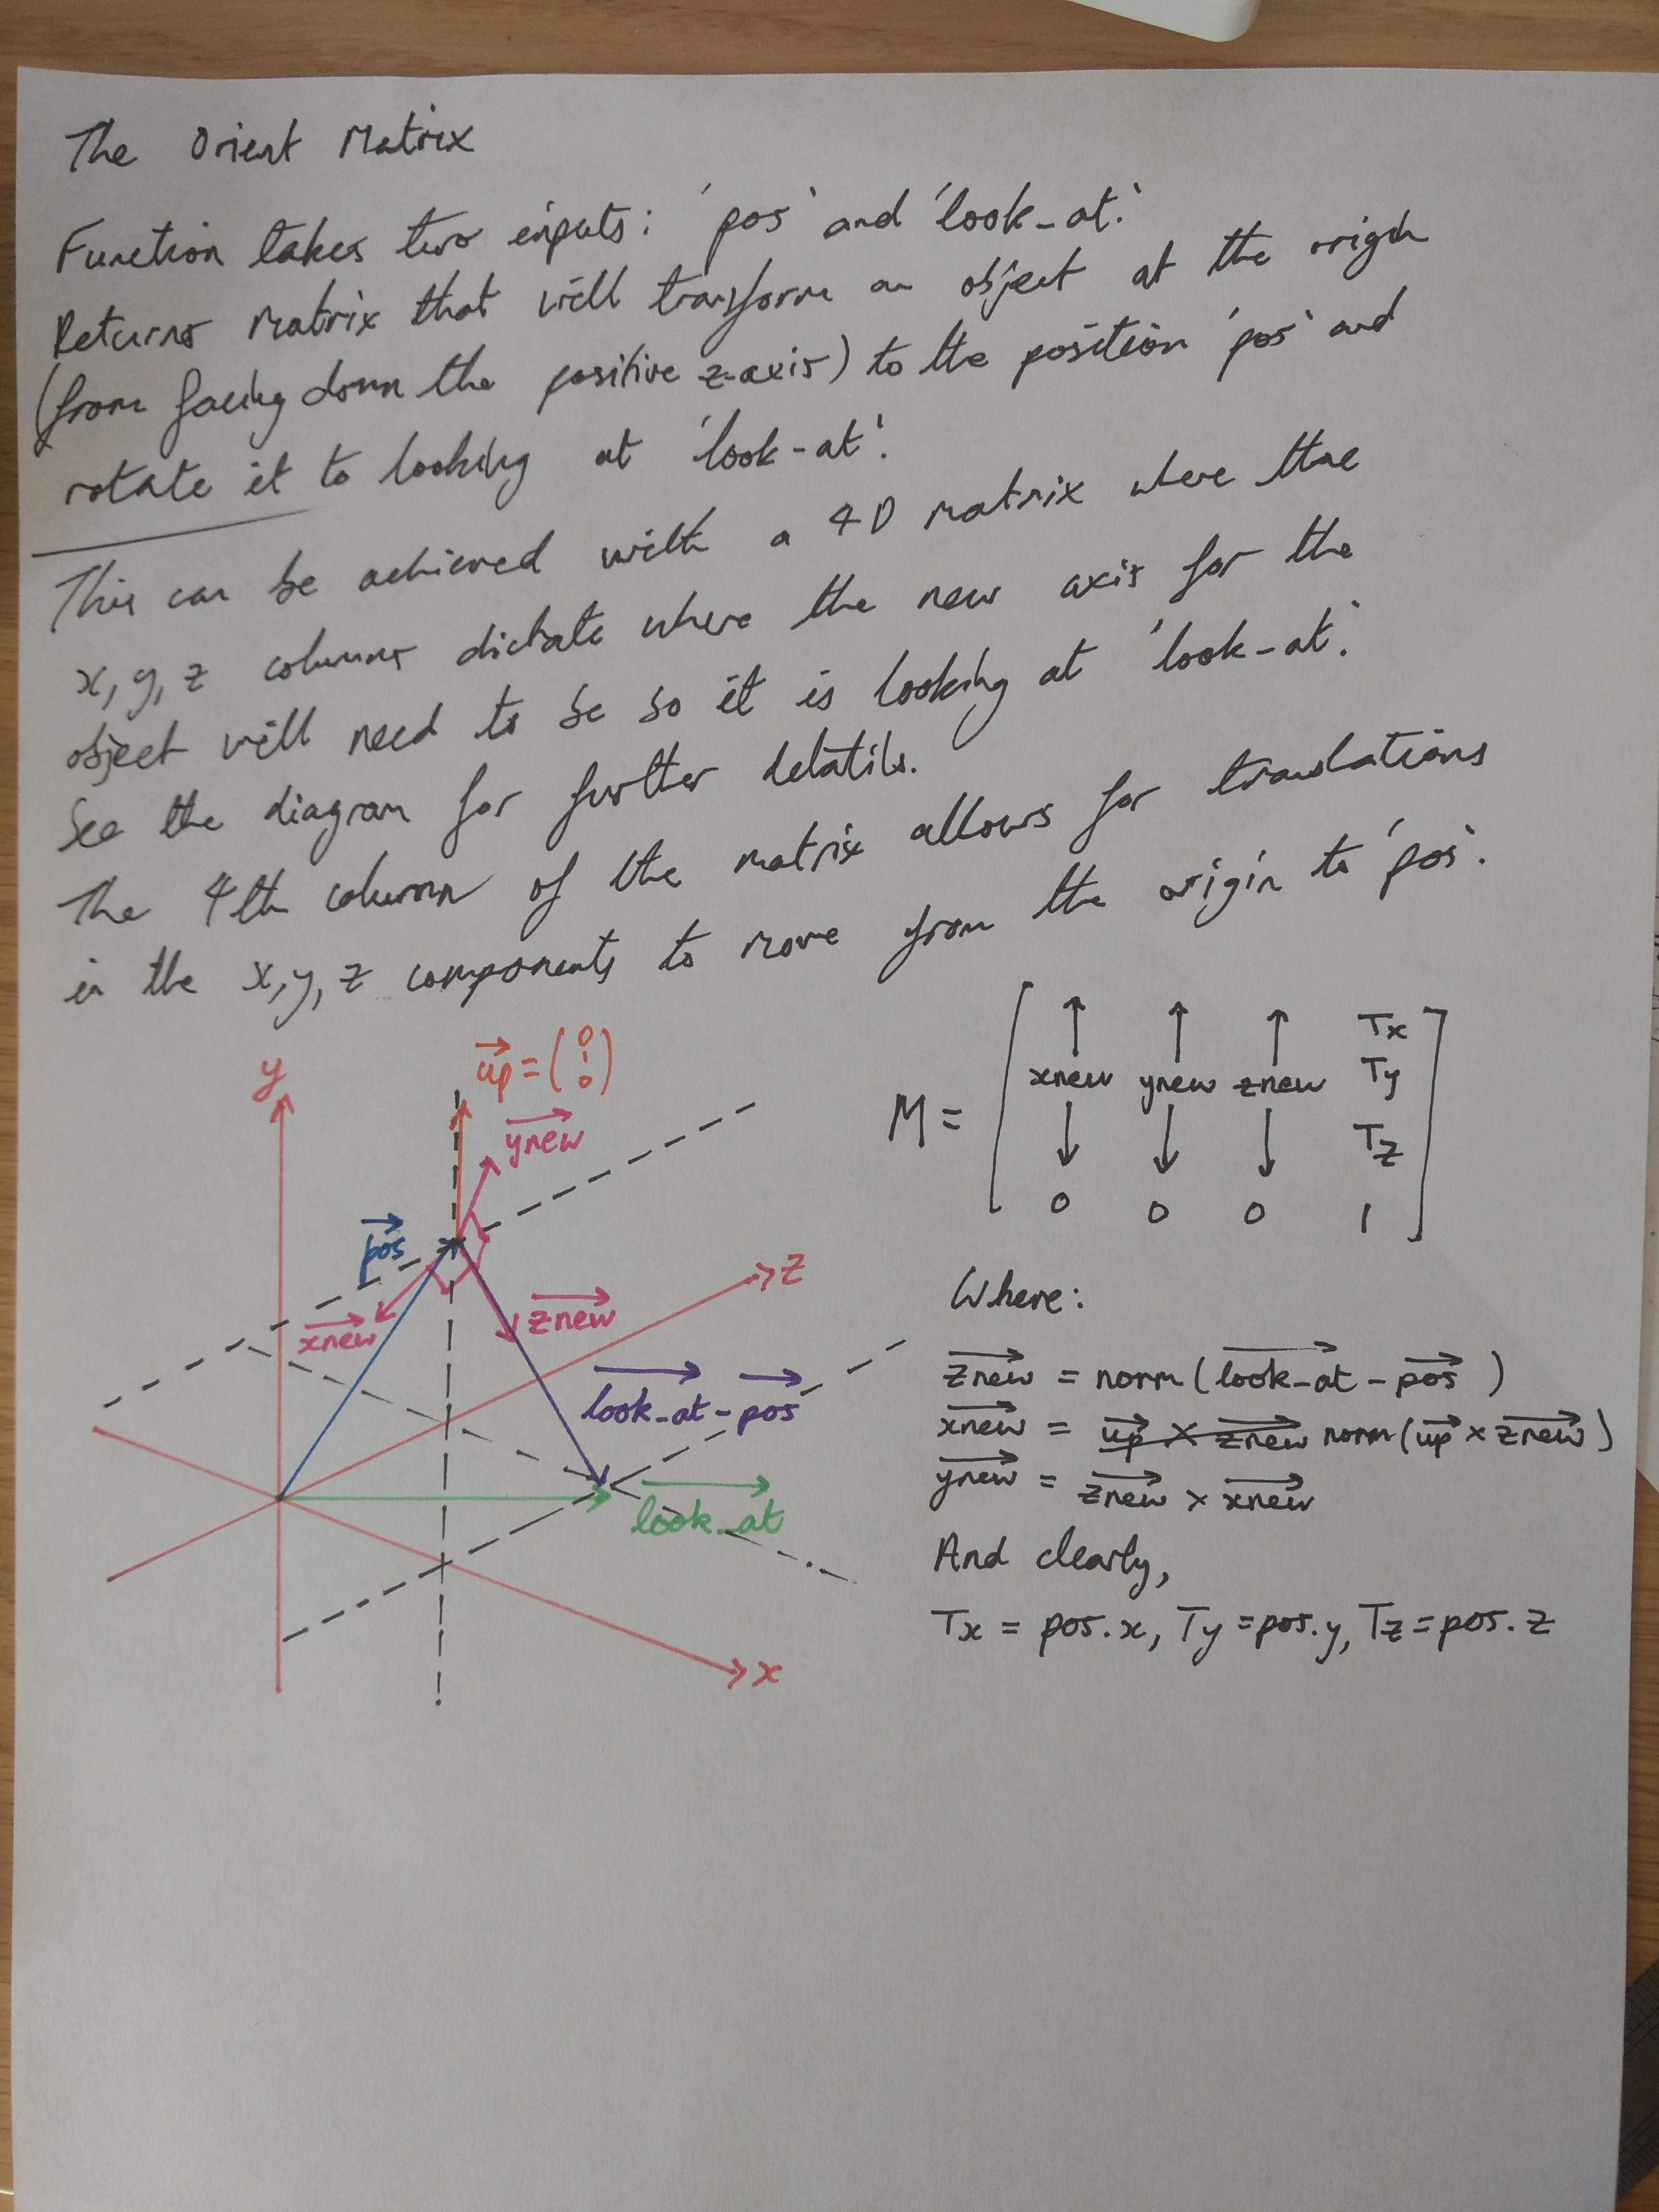 The Orient Matrix
Function takes two inputs: 'pos' and 'look-at'.
Returns matrix that will transform an object at the origin
(from facing down the positive z-axis) to the position 'pos' and
rotate it to looking at 'look-at'.
This can be achieved with a 4D matrix where the
x, y, z columns dictate where the new axis for the
object will need to be so it is looking at 'look-at'.
See the diagram for further detatils.
The 4th column of the matrix allows for translations
in the x, y, z components to move from the origin to 'pos'.
up = (0 1 0)
y
ynew
pos
xnew
znew
z
look-at - pos
look-at
x
M = [ ↑ ↑ ↑ Tx
xnew ynew znew Ty
↓ ↓ ↓ Tz
0 0 0 1 ]
Where:
znew = norm(look-at - pos)
xnew = up × znew norm(up × znew)
ynew = znew × xnew
And clearly,
Tx = pos.x, Ty = pos.y, Tz = pos.z